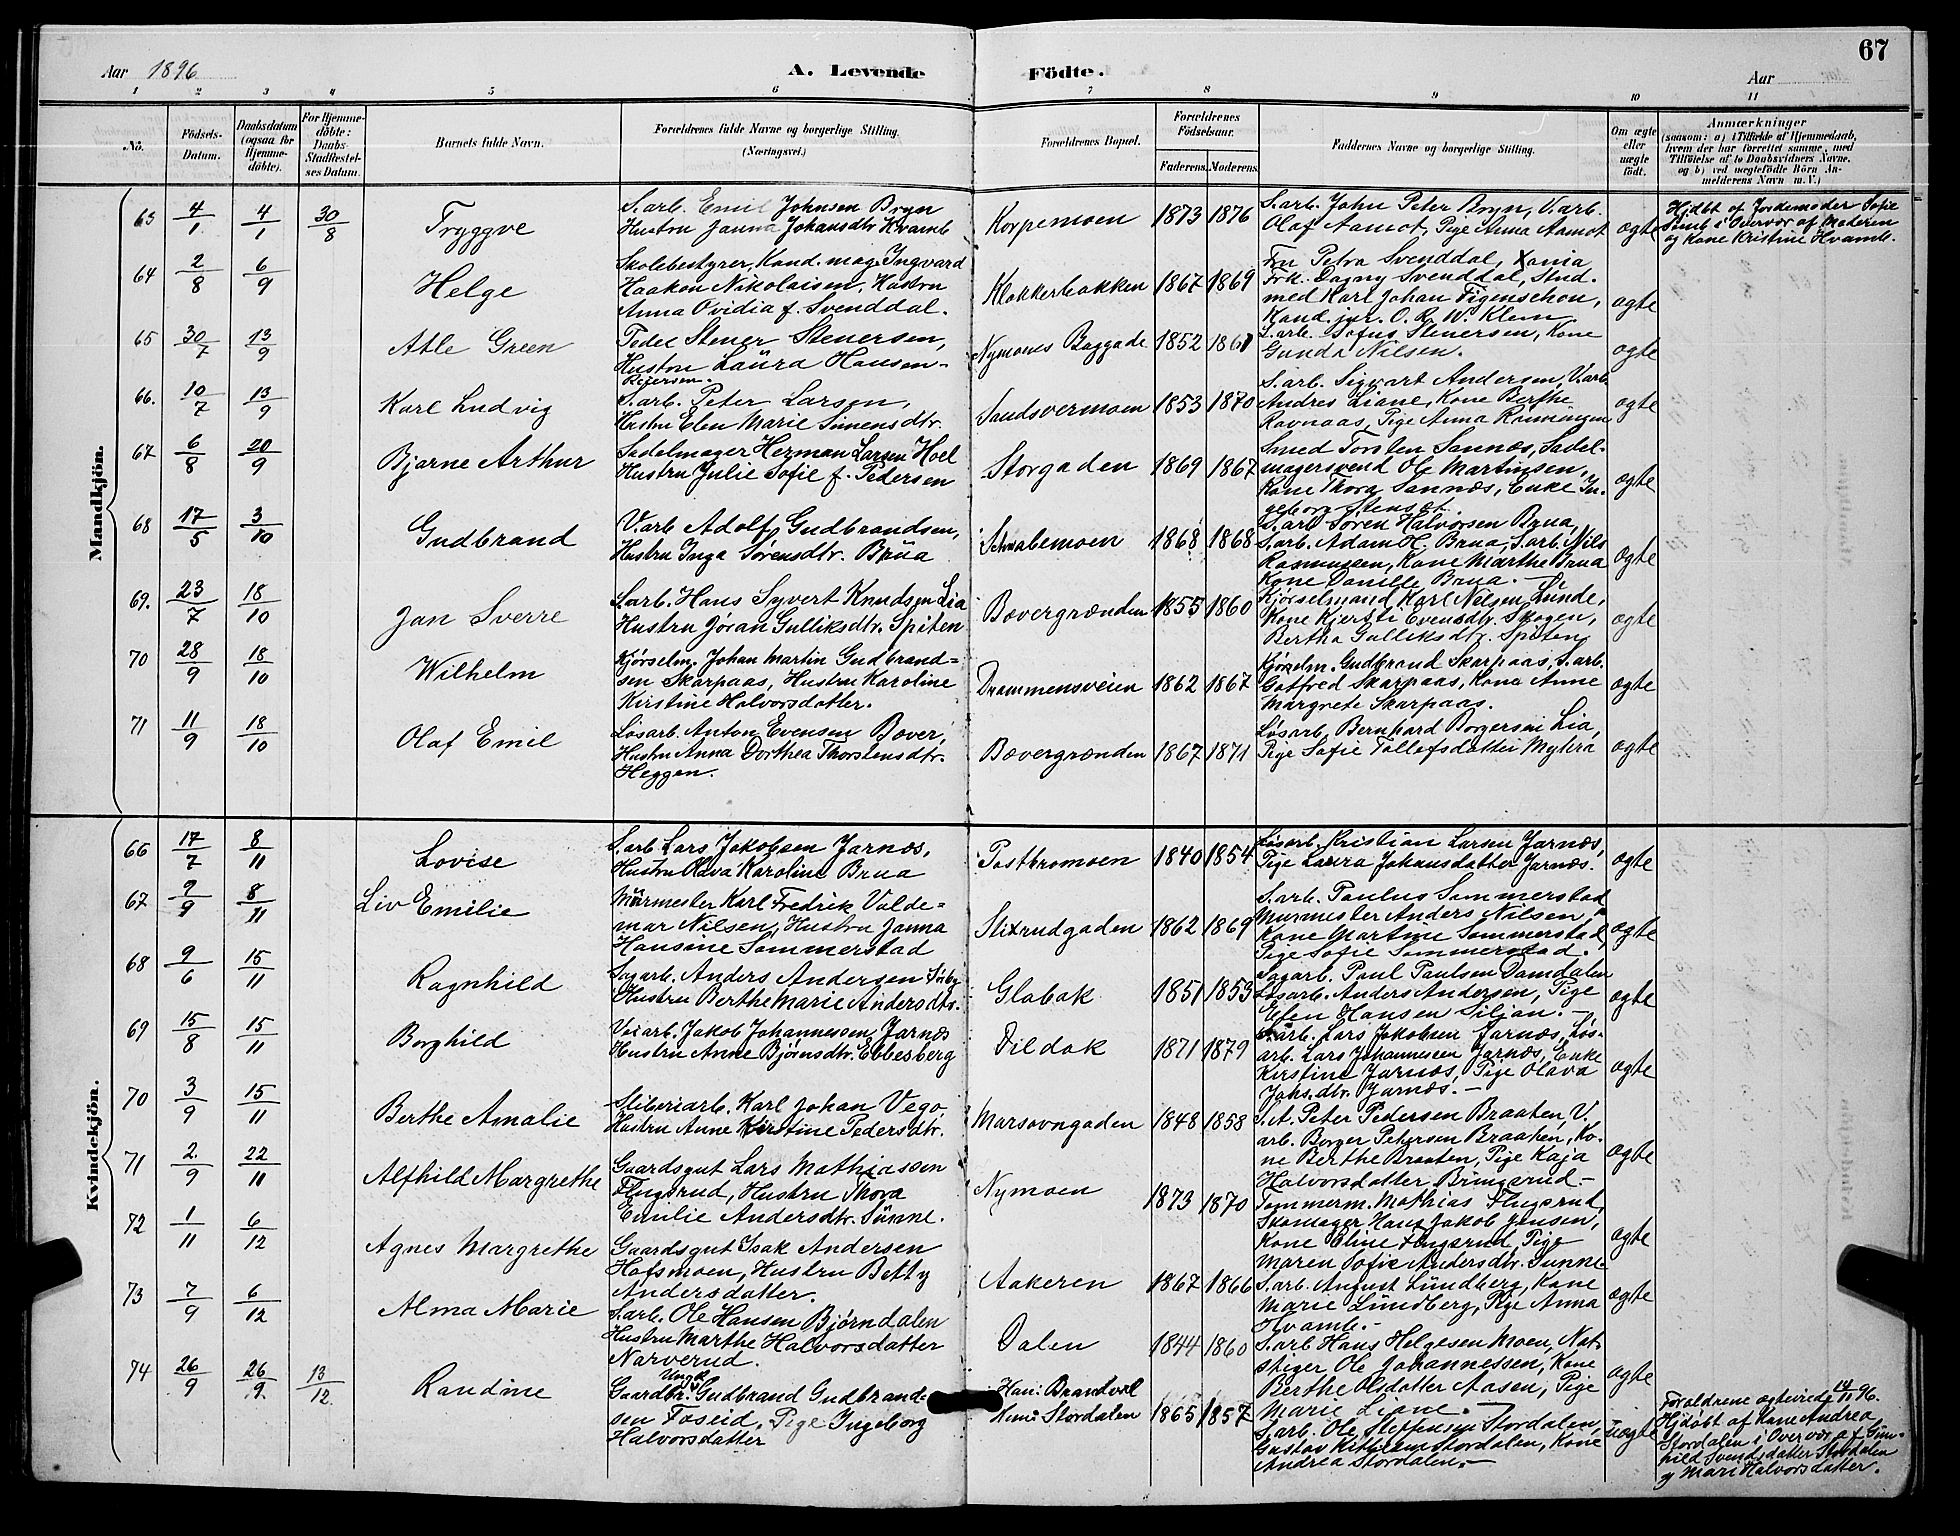 67
Aar 1896
A. Levende Födte.
Aar
1 2 3 4 5 6 7 8 9 10 11
No.
Födsels-Datum.
Daabsdatum (ogsaa for Hjemmedöbte).
For Hjemmedöbte: Daabs-Stadfæstelses Datum.
Barnets fulde Navn.
Forældrenes fulde Navne og borgerlige Stilling.
(Næringsvei.)
Forældrenes Bopæl.
Forældrenes Födselsaar.
Faderens. Moderens.
Faddernes Navne og borgerlige Stilling.
Om ægte eller uægte födt.
Anmærkninger
(saasom: a) i Tilfælde af Hjemmedaab,
hvem der har forrettet samme, med
Tilföielse af to Daabsvidners Navne.
og b) ved uægtefödte Börn An-
melderens Navn m. V.)
Mandkjön.
63 4/1 4/1 30/8 Tryggve
S.arb. Emil Johnsen Bryn
Hustru Janna Johansdtr. Kvamb
Korpemoen 1873 1876
S.arb. John Peter Bryn, V.arb.
Olaf Aamot, Pige Anna Aamot
ægte
Hjdbt af Jordemoder Sofie
Lomb i Overvær af Moderen
og Kone Kristine Hvamb.
64 2/8 6/9 Helge
Skolebestyrer, Kand. mag. Ingvard
Haakon Nikolaisen, Hustru
Anna Ovidia f. Svenddal.
Klokkerbakken 1867 1869
Fru Petra Svenddal, Xania
Frk. Dagny Svenddal, Stud.
med Karl Johan Figenschou,
Kand. jur. O. R. W. Klem
ægte
65 30/7 13/9 Atle Green
Peder Stener Stenersen,
Hustru Laura Hansen-
Reiersen.
Nymoens Baggade 1852 1861
S.arb. Sofus Stenersen, Kone
Gunda Nilsen.
ægte
66. 10/7 13/9 Karl Ludvig
S.arb. Peter Larsen,
Hustru Elen Marie Simensdtr.
Sandsvermoen 1853 1870
S.arb. Sigvart Andersen, V.arb.
Andres Liane, Kone Berthe
Ravnaas, Pige Anna Rønningen
ægte
67 6/8 20/9 Bjarne Arthur
Sadelmager Herman Larsen Hoel
Hustru Julie Sofie f. Pedersen
Storgaden 1869 1867
Smed Torsten Sannæs, Sadel-
magersvend Ole Martinsen,
Kone Thora Sannæs, Enke In-
geborg Stenset.
ægte
68 17/5 3/10 Gudbrand
V.arb Adolf Gudbrandsen,
Hustru Inga Sörensdtr. Brua
Schwabemoen 1868 1868
S.arb Sören Halvorsen Brua,
S.arb. Adam H. Brua, S.arb. Nils
Rasmussen, Kone Marthe Brua
Kone Danille Brua.
ægte
69. 23/7 18/10 Jan Sverre
S.arb. Hans Syvert Knudsen Lia
Hustru Jöran Gulliksdtr. Spiten
Bævergrænden 1855 1860
Kjörselmand Karl Nilsen Lunde,
Kone Kjersti Evensdtr. Skogen,
Bertha Gulliksdtr. Spiten
ægte
70 28/9 18/10 Wilhelm
Kjörselm. Johan Martin Gudbrand=
sen Skarpaas, Hustru Karoline
Kirstine Halvorsdatter.
Drammensveien 1862 1867
Kjörselm. Gudbrand Skarpaas, S.arb.
Gotfred Skarpaas, Kone Anne
Margrete Skarpaas.
ægte
71 11/9 18/10 Olaf Emil
Løsarb. Anton Evensen Bæver,
Hustru Anna Dorthea Thorstensdtr.
Heggen.
Bævergrænden 1867 1871
Løsarb. Bernhard Borgersen Lia,
Pige Sofie Tollefsdatter Myhra
ægte
Kvindekjön.
66 17/7 8/11 Lovise
S.arb Lars Jakobsen Jarnæs,
Hustru Olava Karoline Brua
Postbromoen 1840 1854
Løsarb. Kristian Larsen Jarnæs,
Pige Laura Johansdatter Jarnæs.
ægte
67 9/9 8/11 Liv Emilie
Murmester Karl Fredrik Valde=
mar Nilsen, Hustru Janna
Hansine Sommerstad
Stixrudgaden 1862 1869
S.arb. Paulus Sommerstad
Murmester Anders Nilsen,
Kone Martine Sommerstad,
Pige Sofie Sommerstad.
ægte
68 9/6 15/11 Ragnhild
Sagarb. Anders Andersen
Hustru Berthe Marie Andersdtr.
Glabak 1851 1853
Sagarb. Paul Paulsen Damdalen
Løsarb. Anders Andersen, Pige
Elen Hansen Siljan.
ægte
69 15/8 15/11 Borghild
Veiarb. Jakob Johannessen Jarnæs
Hustru Anne Bjørnsdtr. Ebbesberg
Dildak 1871 1879
S.arb. Lars Jakobsen Jarnæs, Løs-
arb. Lars Johannessen Jarnæs, Enke
Kirstine Jarnæs, Pige Olava
Johs.dtr. Jarnæs.
ægte
70 3/9 15/11 Berthe Amalie
Sliberiarb. Karl Johan Vego,
Hustru Anne Kirstine Pedersdtr.
Marsovngaden 1848 1858
S.A. Peter Pedersen Braaten, V.
arb. Borger Petersen Braaten, Ko-
ne Berthe Braaten, Pige Kaja
Halvorsdatter Bingerud
ægte
71 2/9 22/11 Alfhild Margrethe
Gaardsgut Lars Mathiassen
Flugsrud, Hustru Thora
Emilie Andersdtr. Sunne.
Nymoen 1873 1870
Tømmerm. Mathias Flugsrud,
Skomager Hans Jakob Jensen,
Kone Oline Flugsrud, Pige
Maren Sofie Andersdtr. Sunne
ægte
72 1/11 6/12 Agnes Margrethe
Gaardsgut Isak Andersen
Hofsmoen, Hustru Betty
Andersdatter.
Aakeren 1867 1866
S.arb. August Lundberg, Kone
Marie Lundberg, Pige Anna
Hvamb.
ægte
73 7/9 6/12 Alma Marie
S.arb. Ole Hansen Bjørndalen
Hustru Marthe Halvorsdatter
Narverud.
Dalen 1844 1860
S.arb Hans Helgesen Moen, Nat-
stiger Ole Johannessen, Kone
Berthe Olsdatter Aasen, Pige
Marie Liane.
ægte
74 26/9 26/9. 13/12. Randine
Ungk.
Gaardbr. Gudbrand Gudbrand=
sen Fosud, Pige Ingeborg
Halvorsdatter
Han: Brandvol
Hun: Stordalen 1865 1857
S.arb. Ole Steffensen Stordalen,
Gustav Stordalen, Kone
Andrea Stordalen.
uægte
Forældrene ægteviede 14/11 96.
Hjdøbt af Kone Andrea
Stordalen i Overvær af Gun-
hild Svendsdatter Stordalen
og Mari Halvorsdatter.